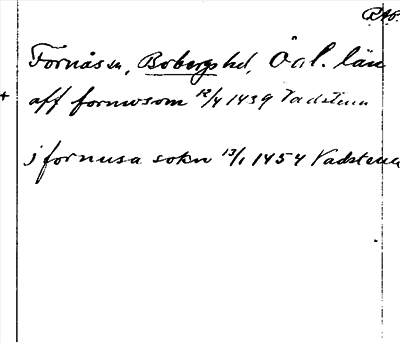 RAP.
Fornåsa, Bobergs hd, Ögl. län
+ aff fornwsom 12/4 1439 Vadstena
j fornusa sokn 13/1 1454 Vadstena